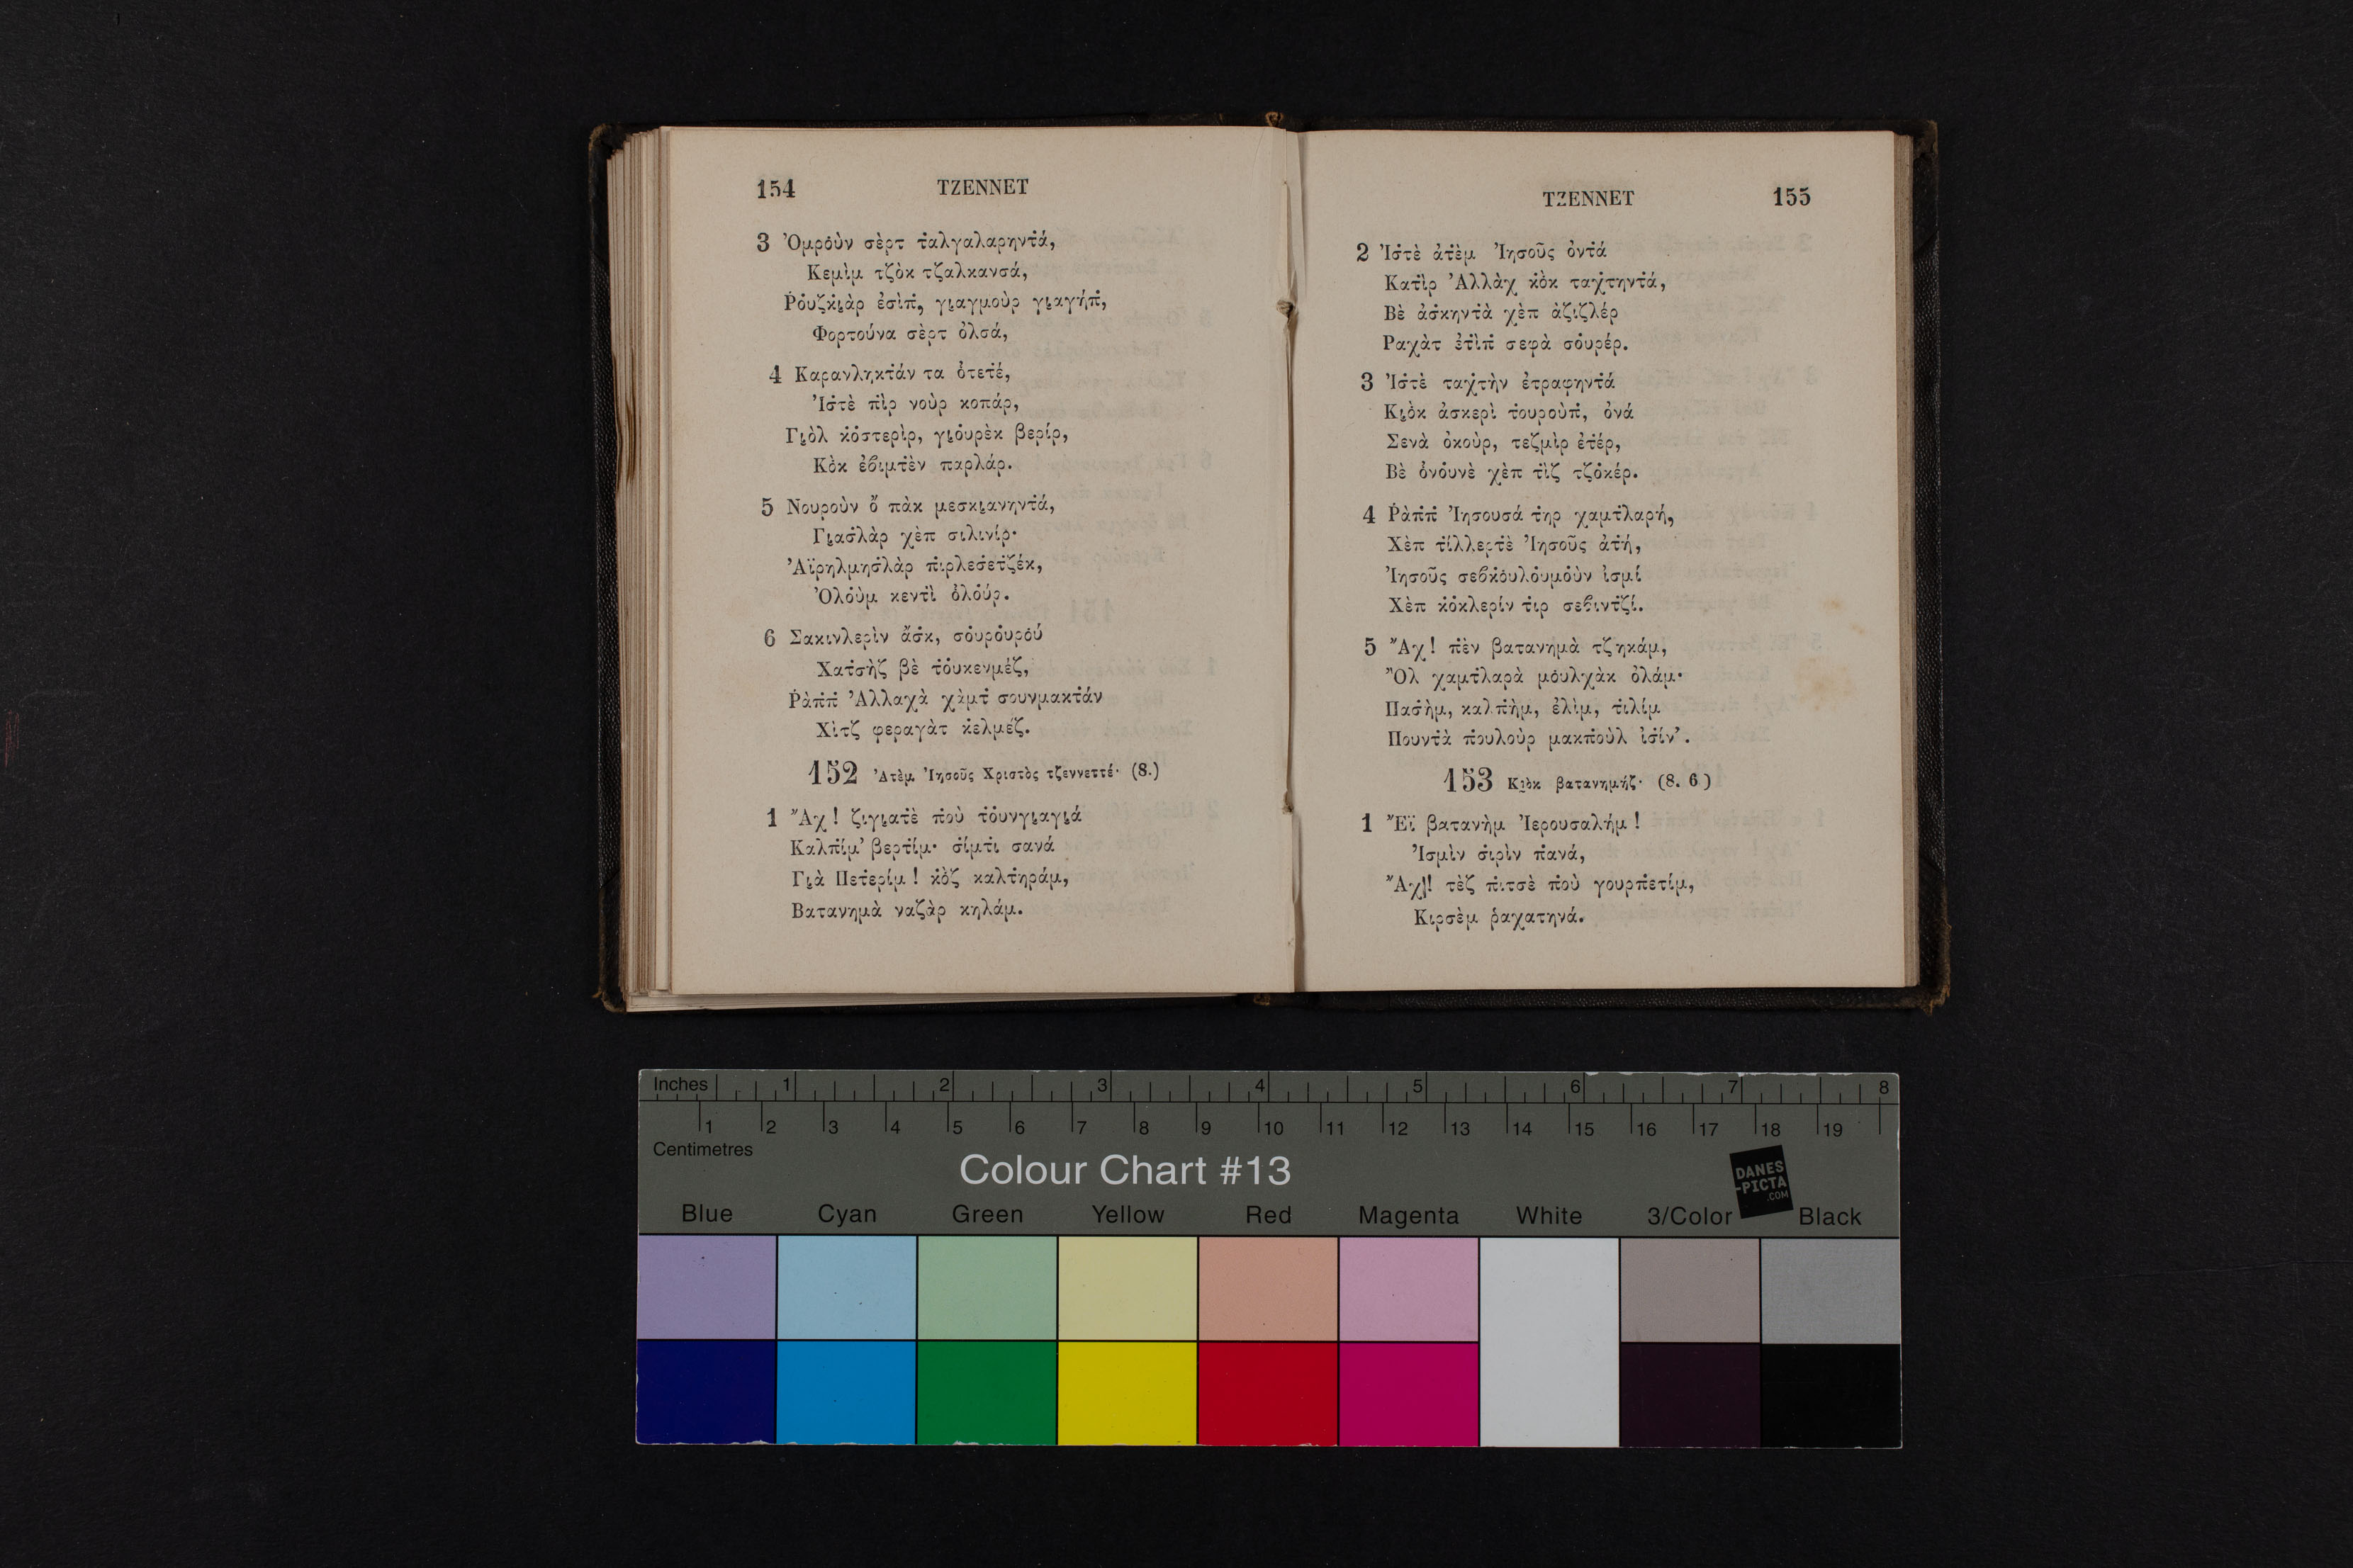 154 ΤΖΕΝΝΕΤ
3 Ὀμρο̇ὺν σὲρτ τ̇αλγαλαρηντ̇ά,
Κεμὶμ τζὸκ τζαλκανσά,
Ῥο̇υζκι̣ὰρ ἐσὶπ̇, γι̣αγμοὺρ γι̣αγήπ̇,
Φορτούνα σὲρτ ὀλσά,
4 Καρανληκτ̇άν τα ὀτετ̇έ,
Ἰσ̇τὲ πὶρ νοὺρ κοπάρ,
Γι̣ὸλ κ̇ο̇στερὶρ, γι̣ο̇υρὲκ βερίρ,
Κὸκ ἐβιμτ̇ὲν παρλάρ.
5 Νουροὺν ὂ πὰκ μεσκι̣ανηντ̇ά,
Γι̣ασ̇λὰρ χὲπ σιλινίρ·
Ἀϊρηλμησ̇λὰρ π̇ιρλεσ̇ετζ̇έκ,
Ὀλο̇ὺμ κεντ̇ὶ ὀλο̇ύρ.
6 Σακινλερὶν ἄσ̇κ, σο̇υρο̇υρο̇ύ
Χατσ̇ὴζ βὲ τ̇ο̇υκενμέζ,
Ῥὰπ̇π̇ Ἀλλαχὰ χὰμτ̇ σουνμακτ̇άν
Χὶτζ φεραγὰτ κ̇ελμέζ.
152 Ἀτὲμ Ἰησοῦς Χριστὸς τζεννεττέ· (8.)
1 Ἄχ! ζιγι̣ατ̇ὲ π̇οὺ τ̇ο̇υνγι̣αγι̣ά
Καλπ̇ίμ’ βερτ̇ίμ· σ̇ίμτ̇ι σανά
Γι̣ὰ Πετ̇ερίμ! κ̇ὸζ καλτ̇ηράμ,
Βατανημὰ ναζὰρ κηλάμ.
ΤΖΕΝΝΕΤ 155
2 Ἰσ̇τὲ ἀτ̇ὲμ Ἰησοῦς ὀντ̇ά
Κατ̇ὶρ Ἀλλὰχ κ̇ὸκ ταχ̇τηντ̇ά,
Βὲ ἀσ̇κηντ̇ὰ χὲπ ἀζιζλέρ
Ραχὰτ ἐτ̇ὶπ̇ σεφὰ σο̇υρέρ.
3 Ἰσ̇τὲ ταχ̇τὴν ἐτραφηντ̇ά
Κι̣ὸκ ἀσκερὶ τ̇ουροὺπ̇, ὀνά
Σενὰ ὀκοὺρ, τεζμὶρ ἐτ̇έρ,
Βὲ ὀνο̇υνὲ χὲπ τ̇ὶζ τζο̇κέρ.
4 Ῥὰπ̇π̇ Ἰησουσά τ̇ηρ χαμτ̇λαρή,
Χὲπ τ̇ίλλερτ̇ὲ Ἰησοῦς ἀτ̇ή,
Ἰησοῦς σεβκ̇ο̇υλο̇υμο̇ὺν ἰσμί
Χὲπ κ̇ο̇κλερίν τ̇ιρ σεβιντζ̇ί.
5 Ἄχ! π̇ὲν βατανημὰ τζηκάμ,
Ὂλ χαμτ̇λαρὰ μο̇υλχὰκ ὀλάμ·
Πασ̇ὴμ, καλπ̇ὴμ, ἐλὶμ, τ̇ιλίμ
Πουντ̇ὰ π̇ουλοὺρ μακπ̇οὺλ ἰσ̇ίν’.
153 Κι̣ὸκ βατανημήζ· (8. 6)
1 Ἔϊ βατανὴμ Ἰερουσαλήμ!
Ἰσμὶν σ̇ιρὶν π̇ανά,
Ἄχ! τὲζ π̇ιτσὲ π̇οὺ γουρπ̇ετίμ,
Κιρσὲμ ῥαχατηνά.
Inches 1 2 3 4 5 6 7 8
1 2 3 4 5 6 7 8 9 10 11 12 13 14 15 16 17 18 19
Centimetres
Colour Chart #13
DANES
-PICTA
.COM
Blue Cyan Green Yellow Red Magenta White 3/Color Black